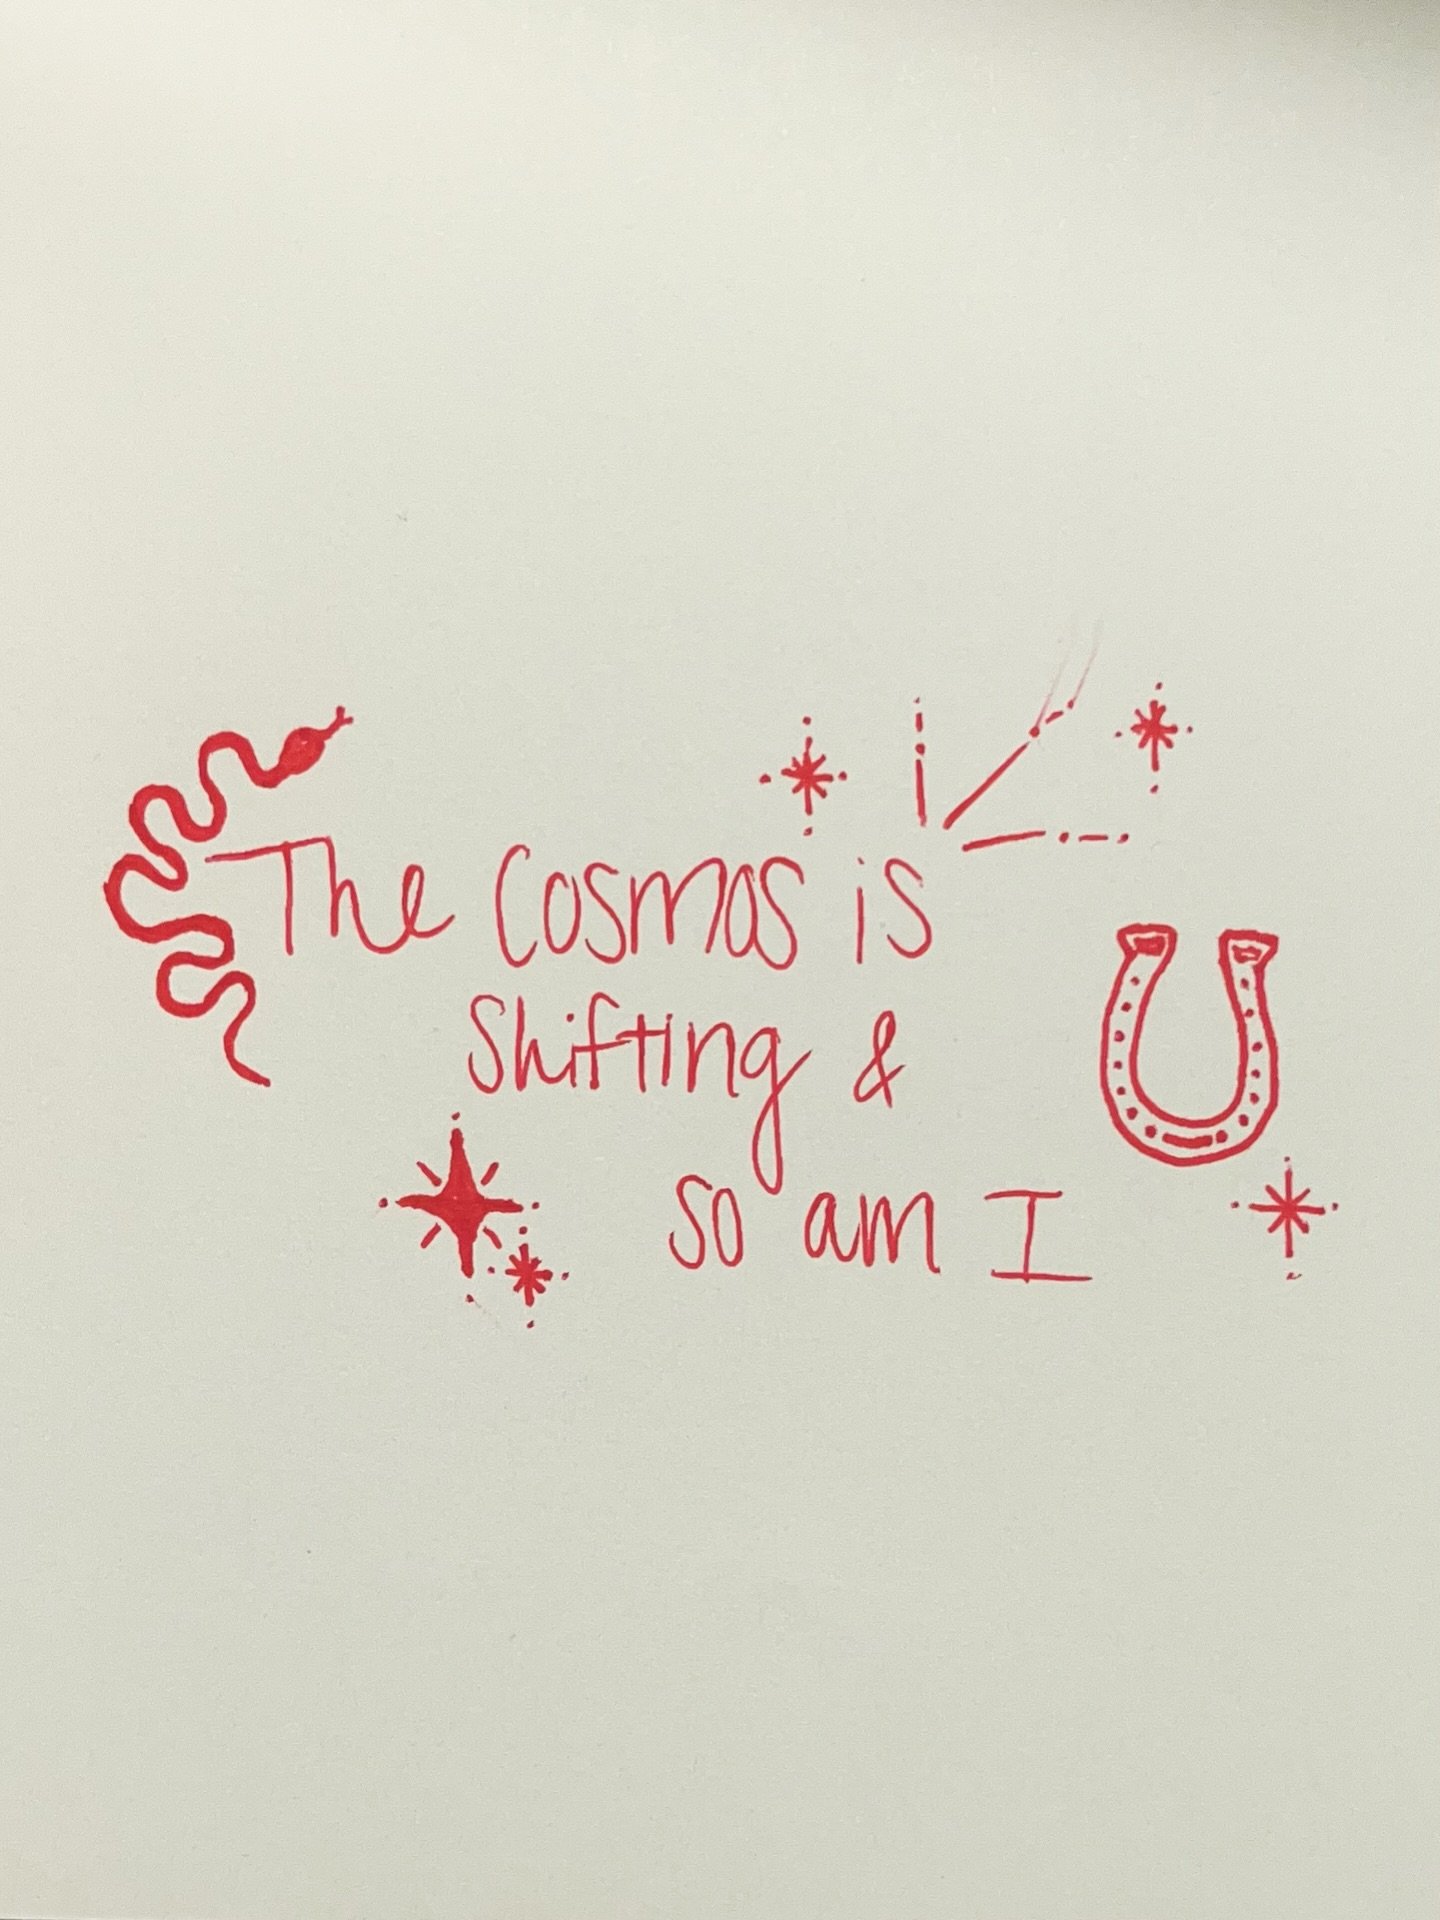 The Cosmos is
Shifting &
so am I